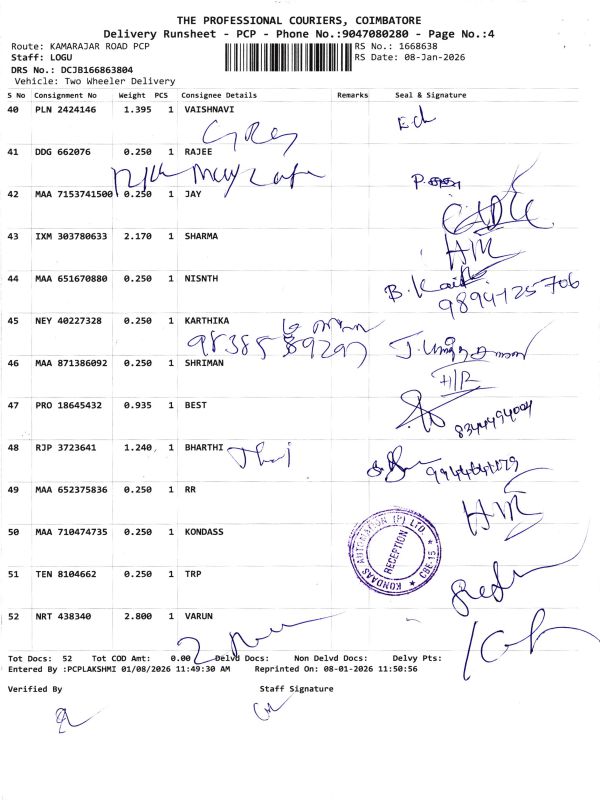 THE PROFESSIONAL COURIERS, COIMBATORE
Delivery Runsheet - PCP - Phone No.:9047080280 - Page No.:4
Route: KAMARAJAR ROAD PCP RS No.: 1668638
Staff: LOGU RS Date: 08-Jan-2026
DRS No.: DCJB166863804
Vehicle: Two Wheeler Delivery
S No Consignment No Weight PCS Consignee Details Remarks Seal & Signature
40 PLN 2424146 1.395 1 VAISHNAVI
41 DDG 662076 0.250 1 RAJEE
42 MAA 7153741500 0.250 1 JAY
43 IXM 303780633 2.170 1 SHARMA
H/R
44 MAA 651670880 0.250 1 NISNTH
9894125706
45 NEY 40227328 0.250 1 KARTHIKA
46 MAA 871386092 0.250 1 SHRIMAN
H/R
47 PRO 18645432 0.935 1 BEST
48 RJP 3723641 1.240 1 BHARTHI
49 MAA 652375836 0.250 1 RR
H/R
50 MAA 710474735 0.250 1 KONDASS
KONDAAS AUTOMATION (P) LTD. * CBE-15 *
RECEPTION
51 TEN 8104662 0.250 1 TRP
52 NRT 438340 2.800 1 VARUN
Tot Docs: 52 Tot COD Amt: 0.00 Delvd Docs: Non Delvd Docs: Delvy Pts:
Entered By :PCPLAKSHMI 01/08/2026 11:49:30 AM Reprinted On: 08-01-2026 11:50:56
Verified By Staff Signature